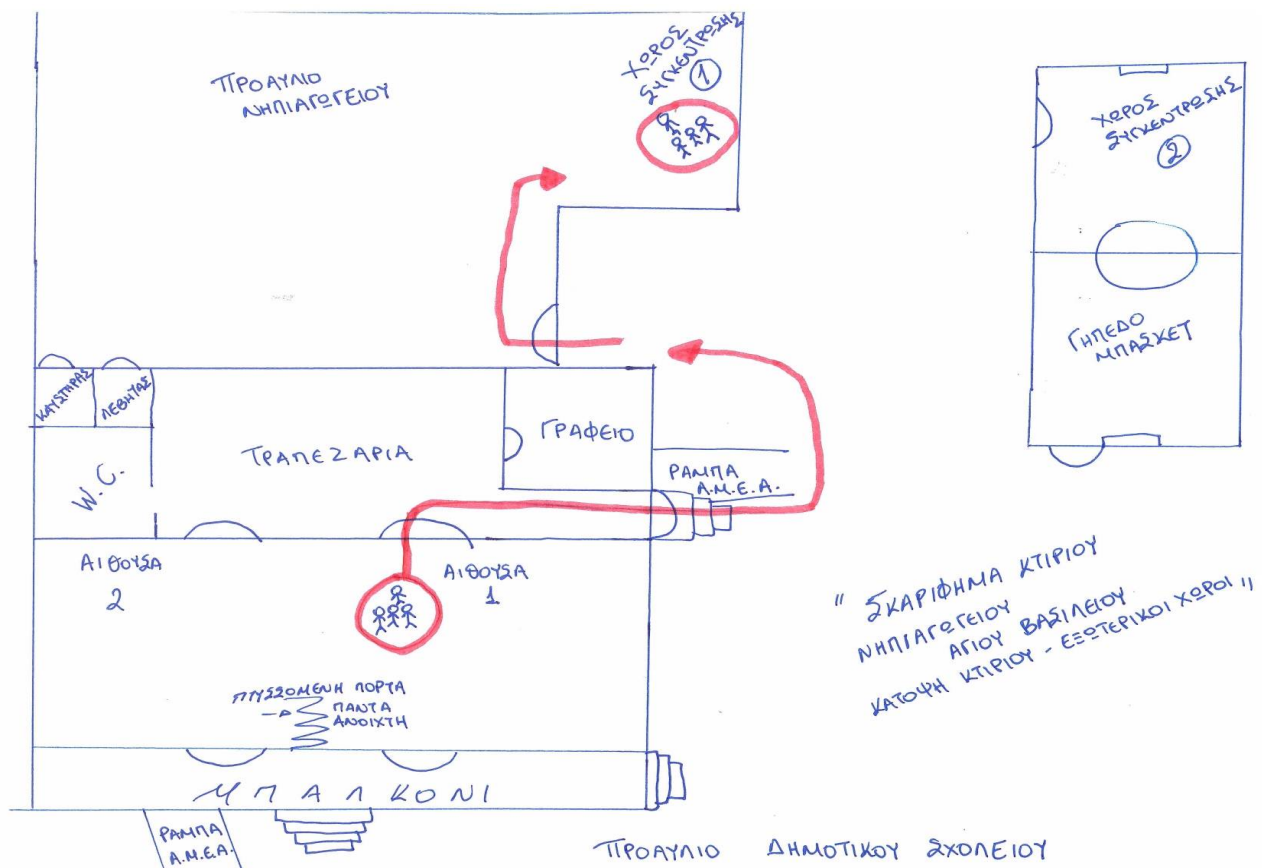 ΠΡΟΑΥΛΙΟ
ΝΗΠΙΑΓΩΓΕΙΟΥ
ΧΩΡΟΣ
ΣΥΓΚΕΝΤΡΩΣΗΣ
1
ΧΩΡΟΣ
ΣΥΓΚΕΝΤΡΩΣΗΣ
2
ΓΗΠΕΔΟ
ΜΠΑΣΚΕΤ
ΚΑΥΣΤΗΡΑΣ
ΛΕΒΗΤΑΣ
W.C.
ΤΡΑΠΕΖΑΡΙΑ
ΓΡΑΦΕΙΟ
ΡΑΜΠΑ
Α.Μ.Ε.Α.
ΑΙΘΟΥΣΑ
2
ΑΙΘΟΥΣΑ
1
ΠΤΥΣΣΟΜΕΝΗ ΠΟΡΤΑ
ΠΑΝΤΑ
ΑΝΟΙΧΤΗ
ΜΠΑΛΚΟΝΙ
ΡΑΜΠΑ
Α.Μ.Ε.Α.
" ΣΚΑΡΙΦΗΜΑ ΚΤΙΡΙΟΥ
ΝΗΠΙΑΓΩΓΕΙΟΥ
ΑΓΙΟΥ ΒΑΣΙΛΕΙΟΥ
ΚΑΤΟΨΗ ΚΤΙΡΙΟΥ - ΕΞΩΤΕΡΙΚΟΙ ΧΩΡΟΙ "
ΠΡΟΑΥΛΙΟ ΔΗΜΟΤΙΚΟΥ ΣΧΟΛΕΙΟΥ